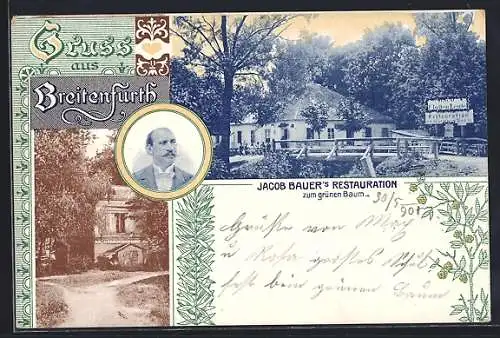 Gruss
aus
Breitenfurth
Restauration
JACOB BAUER'S RESTAURATION
zum grünen Baum.
30/5
901
Grüße von
u Rosa großes
fest beim grünen Baum